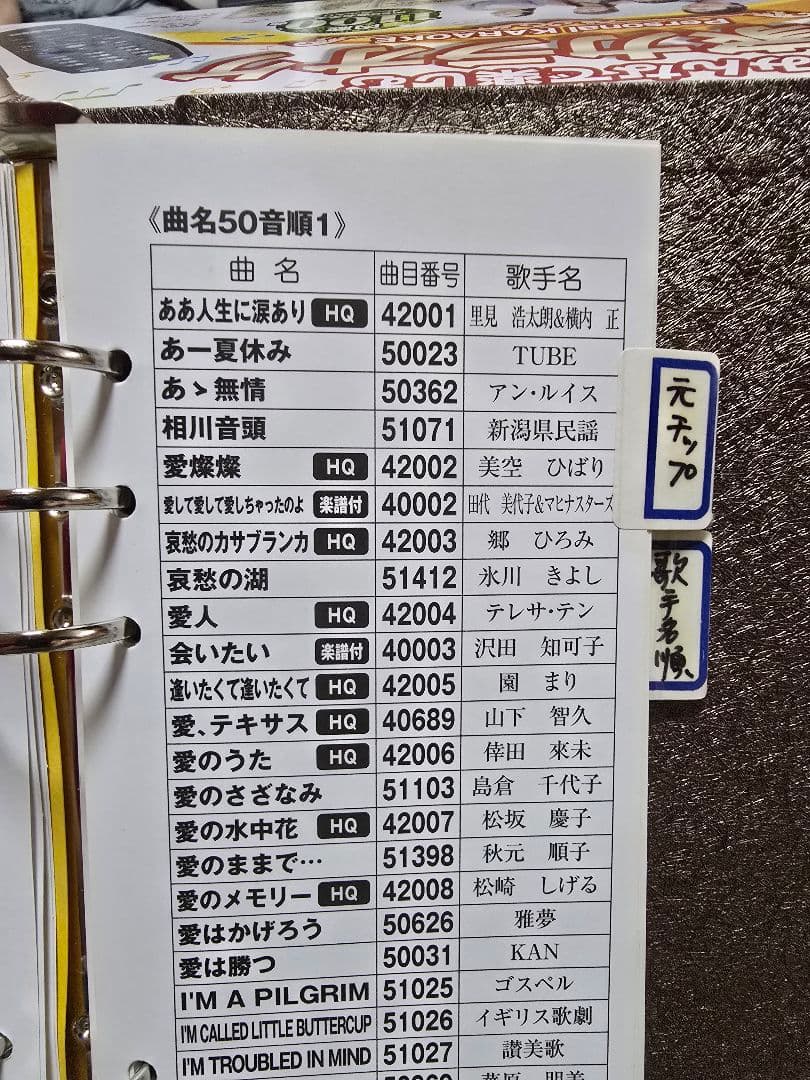 Personal KARAOKE
みんなで楽しめる
《曲名50音順1》
曲名 曲目番号 歌手名
ああ人生に涙あり HQ 42001 里見 浩太朗&横内 正
あー夏休み 50023 TUBE
あゝ無情 50362 アン・ルイス
相川音頭 51071 新潟県民謡
愛燦燦 HQ 42002 美空 ひばり
愛して愛して愛しちゃったのよ 楽譜付 40002 田代 美代子&マヒナスターズ
哀愁のカサブランカ HQ 42003 郷 ひろみ
哀愁の湖 51412 氷川 きよし
愛人 HQ 42004 テレサ・テン
会いたい 楽譜付 40003 沢田 知可子
逢いたくて逢いたくて HQ 42005 園 まり
愛、テキサス HQ 40689 山下 智久
愛のうた HQ 42006 倖田 來未
愛のさざなみ 51103 島倉 千代子
愛の水中花 HQ 42007 松坂 慶子
愛のままで… 51398 秋元 順子
愛のメモリー HQ 42008 松崎 しげる
愛はかげろう 50626 雅夢
愛は勝つ 50031 KAN
I'M A PILGRIM 51025 ゴスペル
I'M CALLED LITTLE BUTTERCUP 51026 イギリス歌劇
I'M TROUBLED IN MIND 51027 讃美歌
元チップ
歌手名順、